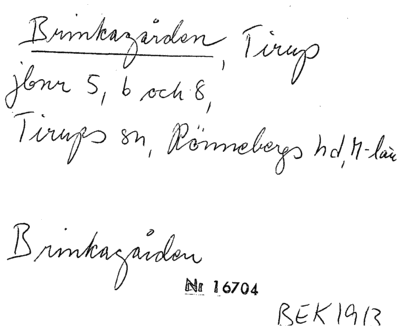 Brinkagården, Tirup
jbnr 5, 6 och 8,
Tirups sn, Rönnebergs hd, M-län
Brinkagården
Nr 16704
BEK 1913